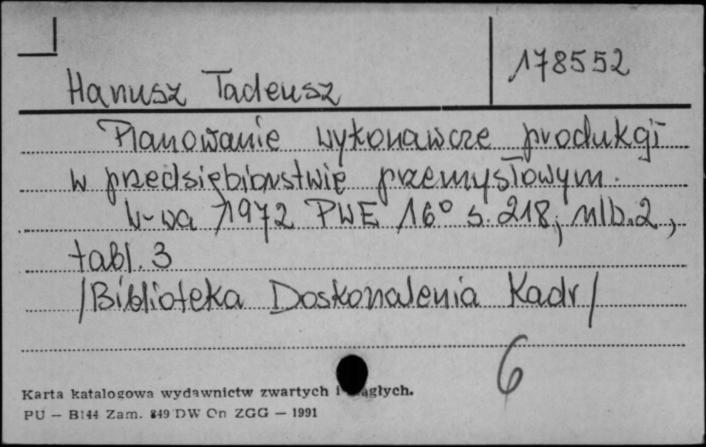 178552
Hanusz Tadeusz
Planowanie wykonawcze produkcji
w przedsiębiorstwie przemysłowym.
W-wa 1972 PWE 16° s. 218, nlb. 2,
tabl. 3
/Biblioteka Doskonalenia Kadr/
6
Karta katalogowa wydawnictw zwartych i ągłych.
PU — B144 Zam. 849 DW Cn ZGG — 1991